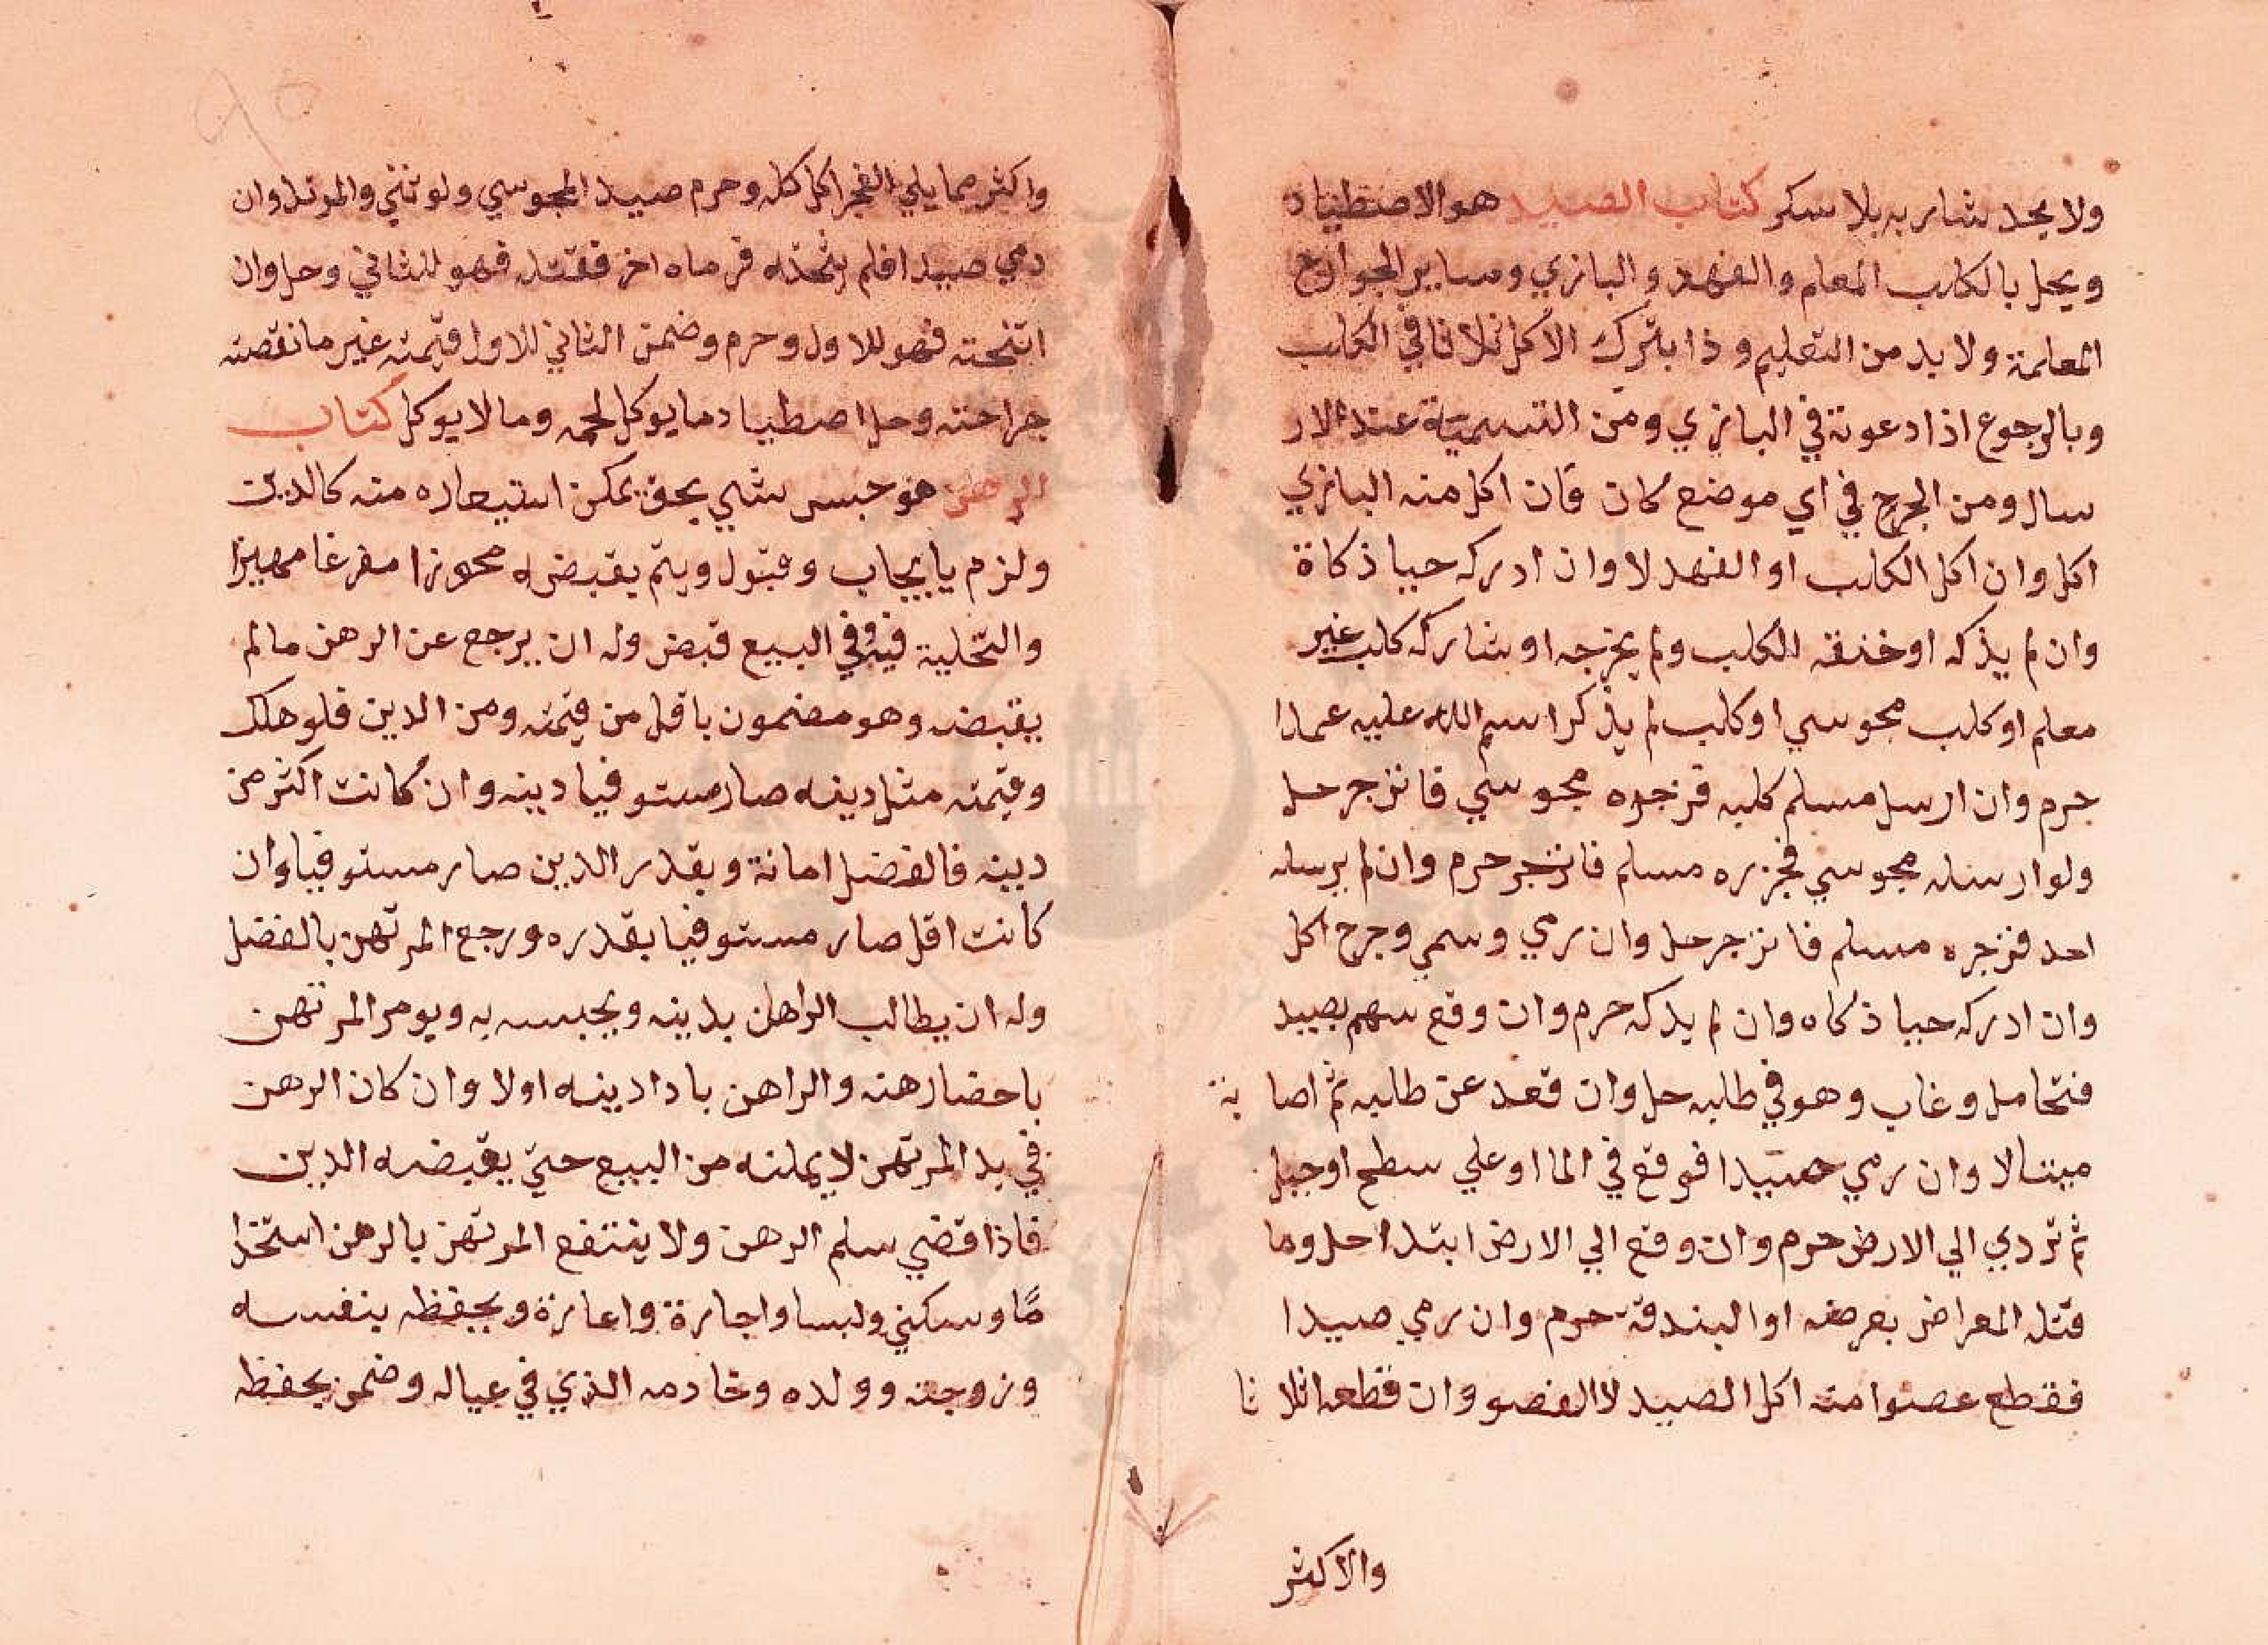 ولا يحد شاربه بلا سكر كتاب الصيد هو الاصطياد
ويحل بالكلب المعلم والفهد والبازي وساير الجوارح
المعلمة ولا بد من التعليم وذا بترك الاكل ثلاثا في الكلب
وبالرجوع اذا دعوته في البازي ومن التسمية عند الار
سال ومن الجرح في اي موضع كان فان اكل منه البازي
اكل وان اكل الكلب او الفهد لا وان ادركه حيا ذكاة
وان لم يذكه او خنقه الكلب ولم يجرحه او شاركه كلب غير
معلم او كلب مجوسي او كلب لم يذكر اسم الله عليه عمدا
حرم وان ارسل مسلم كلبه فزجره مجوسي فانزجر حل
ولو ارسله مجوسي فزجره مسلم فانزجر حرم وان لم يرسله
احد فزجره مسلم فانزجر حل وان رمي وسمي وجرح اكل
وان ادركه حيا ذكاه وان لم يذكه حرم وان وقع سهم بصيد
فتحامل وغاب وهو في طلبه حل وان قعد عن طلبه ثم اصا به
ميتا لا وان رمي صيدا فوقع في الما او علي سطح او جبل
ثم تردي الي الارض حرم وان وقع الي الارض ابتدا حل وما
قتله المعراض بعرضه او البندقة حرم وان رمي صيدا
فقطع عضوا منه اكل الصيد لا العضو وان قطعه اثلاثا
والاكثر
واكثر مما يلي العجز اكل كله وحرم صيد المجوسي ولوثني والمرتد وان
رمي صيدا فلم يثخنه فرماه اخر فقتله فهو للثاني وحل وان
اثخنه فهو للاول وحرم وضمن الثاني للاول قيمته غير ما نقصته
جراحته وحل اصطياد ما يوكل لحمه وما لا يوكل كتاب
الرهن هو حبس شي بحق يمكن استيعاده منه كالدين
ولزم بايجاب وقبول ويتم يقبضه محوزا مفرغا مميزا
والتخلية فيه وفي البيع قبض وله ان يرجع عن الرهن مالم
يقبضه وهو مضمون باقل من قيمته ومن الدين فلو هلك
وقيمته مثل دينه صار مستوفيا دينه وان كانت اكثر من
دينه فالفضل امانة وبقدر الدين صار مستوفيا وان
كانت اقل صار مستوفيا بقدره ورجع المرتهن بالفضل
وله ان يطالب الراهن بدينه ويحبسه به ويومر المرتهن
باحضار رهنه والراهن بادا دينه اولا وان كان الرهن
في يد المرتهن لا يملنه من البيع حتي يقبضه الدين
فاذا قضي سلم الرهن ولا ينتفع المرتهن بالرهن استخدا
ما وسكني ولبسا واجارة واعارة ويحفظه بنفسه
وزوجته وولده وخادمه الذي في عياله وضمن بحفظه